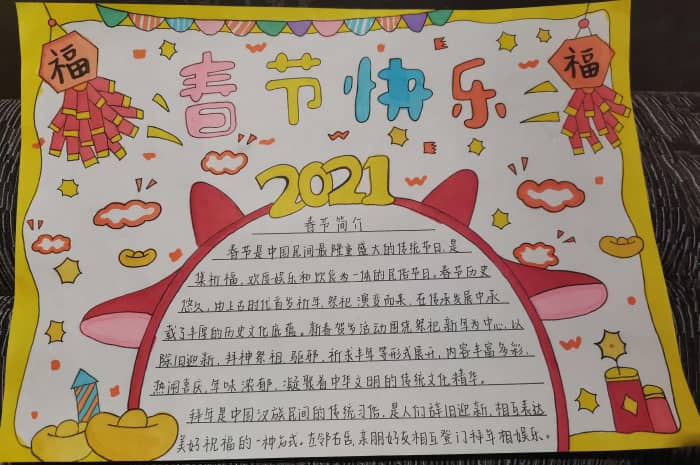 福
福
春节快乐
2021
春节简介
春节是中国民间最隆重盛大的传统节日,是
集祈福、欢度娱乐和饮食为一体的民俗节日。春节历史
悠久,由上古时代首岁祈年祭祀演变而来,在传承发展中承
载了丰厚的历史文化底蕴。新春贺岁活动围绕祭祀新年为中心,以
除旧迎新、拜神祭祖、驱邪、祈求丰年等形式展开,内容丰富多彩,
热闹喜庆,年味浓郁,凝聚着中华文明的传统文化精华。
拜年是中国汉族民间的传统习俗,是人们辞旧迎新、相互表达
美好祝福的一种方式。左邻右舍、亲朋好友相互登门拜年相娱乐。